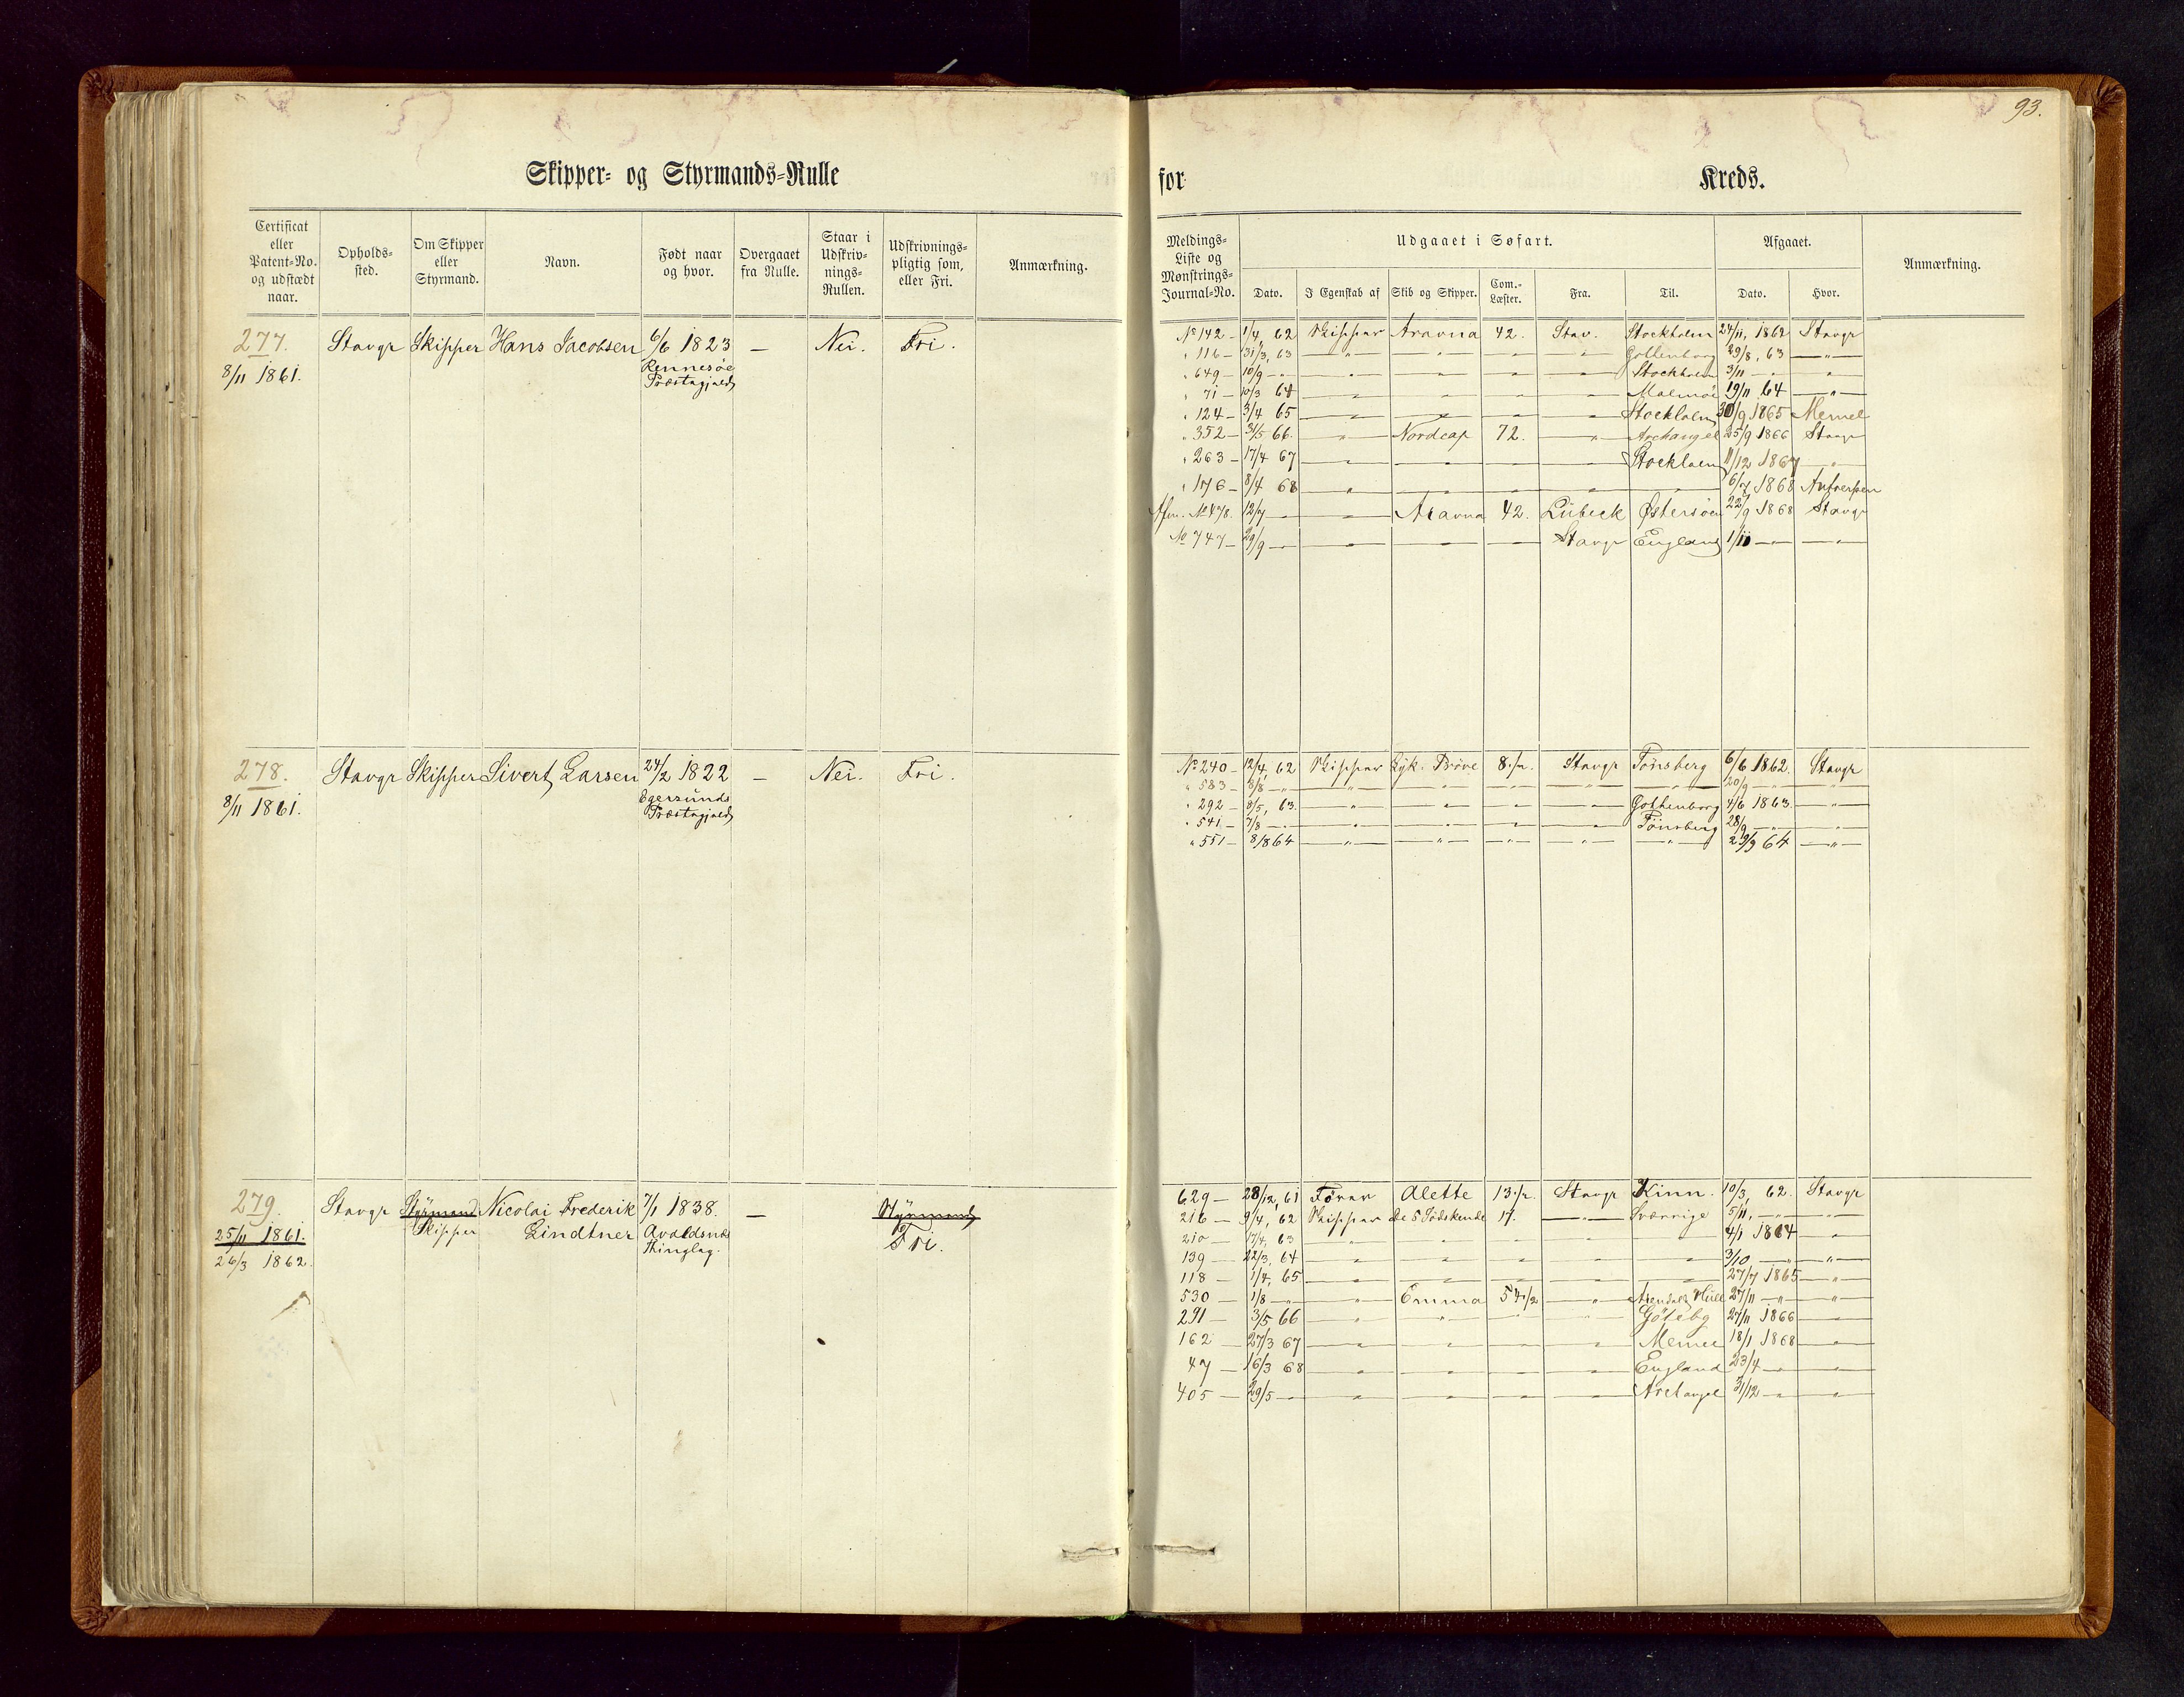 93.
Skipper- og Styrmands-Rulle for Kreds.
Certificat eller Patent-No. og udstædt naar. | Opholds-sted. | Om Skipper eller Styrmand. | Navn. | Født naar og hvor. | Overgaaet fra Rulle. | Staar i Udskriv-nings-Rullen. | Udskrivnings-pligtig som, eller Fri. | Anmærkning.
Meldings-Liste og Mønstrings-Journal-No. | Udgaaet i Søfart. | Afgaaet. | Anmærkning.
Dato. | I Egenskab af | Skib og Skipper. | Com.-Læster. | Fra. | Til. | Dato. | Hvor.
277. Stavgr Skipper Hans Jacobsen 6/6 1823 — Nei. Fri.
8/11 1861. Rennesøe
Præstegjæld
No 142 — 1/4, 62 Skipper Aravna 42. Stav. Stockholm 24/11, 1862 Stavgr
" 116 — 31/3, 63 — " — " — " — " Gottenborg 29/8, 63 — " —
" 649 — 10/9 — " — " — " — " — " Stockholm 3/11 — " — "
" 71 — 10/3 64 — " — " — " — " Malmøe 19/11 64 — "
" 124 — 3/4 65 — " — " — " — " Stockholm 30/9 1865 Memel
" 352 — 31/5 66. — " — Nordcap 72. — " — Archangel 25/9 1866 Stavgr
" 263 — 17/4 67 — " — " — " — " Stockholm 11/12 1867 "
" 176 — 8/4 68 — " — " — " — " — 6/7 1868 Antverpen
No 478. 12/7 — " — Aravna 42. Lübeck Østersøen 22/9 1868 Stavgr
No 747 — 29/9 — " — " — " — Stavgr England 1/11 — " — "
278. Stavgr Skipper Sivert Larsen 24/2 1822 — Nei. Fri.
8/11 1861. Egersunds
Præstegjæld
No 240 — 12/4, 62 Skipper Lyk. Prøve 8 1/2. Stavgr Tønsberg 6/6 1862. Stavgr
" 583 — 8/8 — " — " — " — " — " — " 20/9 — " — "
" 292 — 8/5, 63. — " — " — " — " Gothenborg 4/6 1863. — "
" 541 — 7/8 — " — " — " — " — " Tønsberg 28/9 — " — "
" 551 — 8/8 64 — " — " — " — " — " — 29/9 64 — " —
279. Stavgr Styrmand Nicolai Frederik 7/1 1838. — Styrmand
25/11 1861. Skipper Lindtner Avaldsnæs Fri.
26/3 1862. Thinglag.
629 — 28/12, 61 Fører Alette 13 1/2. Stavgr Kinn. 10/3, 62. Stavgr
216 — 9/4, 62 Skipper de 5 Sødskende 17. — " — Sverrige 5/11, — " — "
210 — 17/4, 63 — " — " — " — " — " 4/1 1864 — "
139 — 22/3, 64 — " — " — " — " — " 3/10 — " — "
118 — 1/4, 65 — " — " — " — " — " 27/7 1865 — "
530 — 1/8 — " — " Emma 54 1/2 — " Arendal & Hull 27/11 — " — "
291 — 3/5 66 — " — " — " — " Götebg 27/11 1866 — "
162 — 27/3 67 — " — " — " — " Memel 18/1 1868 — "
47 — 16/3 68 — " — " — " — " England 23/4 — " — "
405 — 29/5 — " — " — " — " — " Archangel 31/12 — " — "